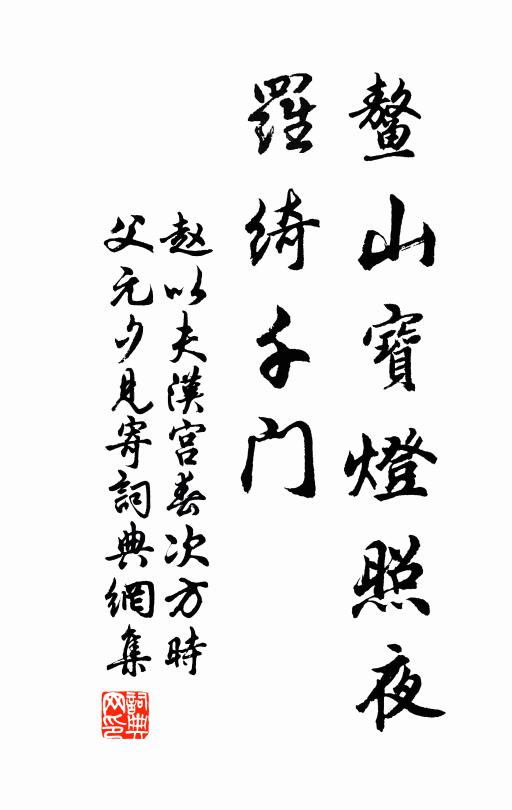 鰲山寶燈照夜
羅綺千門
赵以夫漢宮春次方時
父元夕見寄詞典網集
詞典
网印